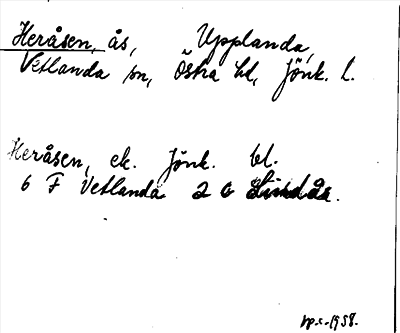 Heråsen, ås, Upplanda,
Vetlanda sn, Östra hd, Jönk. l.
Heråsen, ek. Jönk. bl.
6 F Vetlanda 2 a Lindås.
1958.